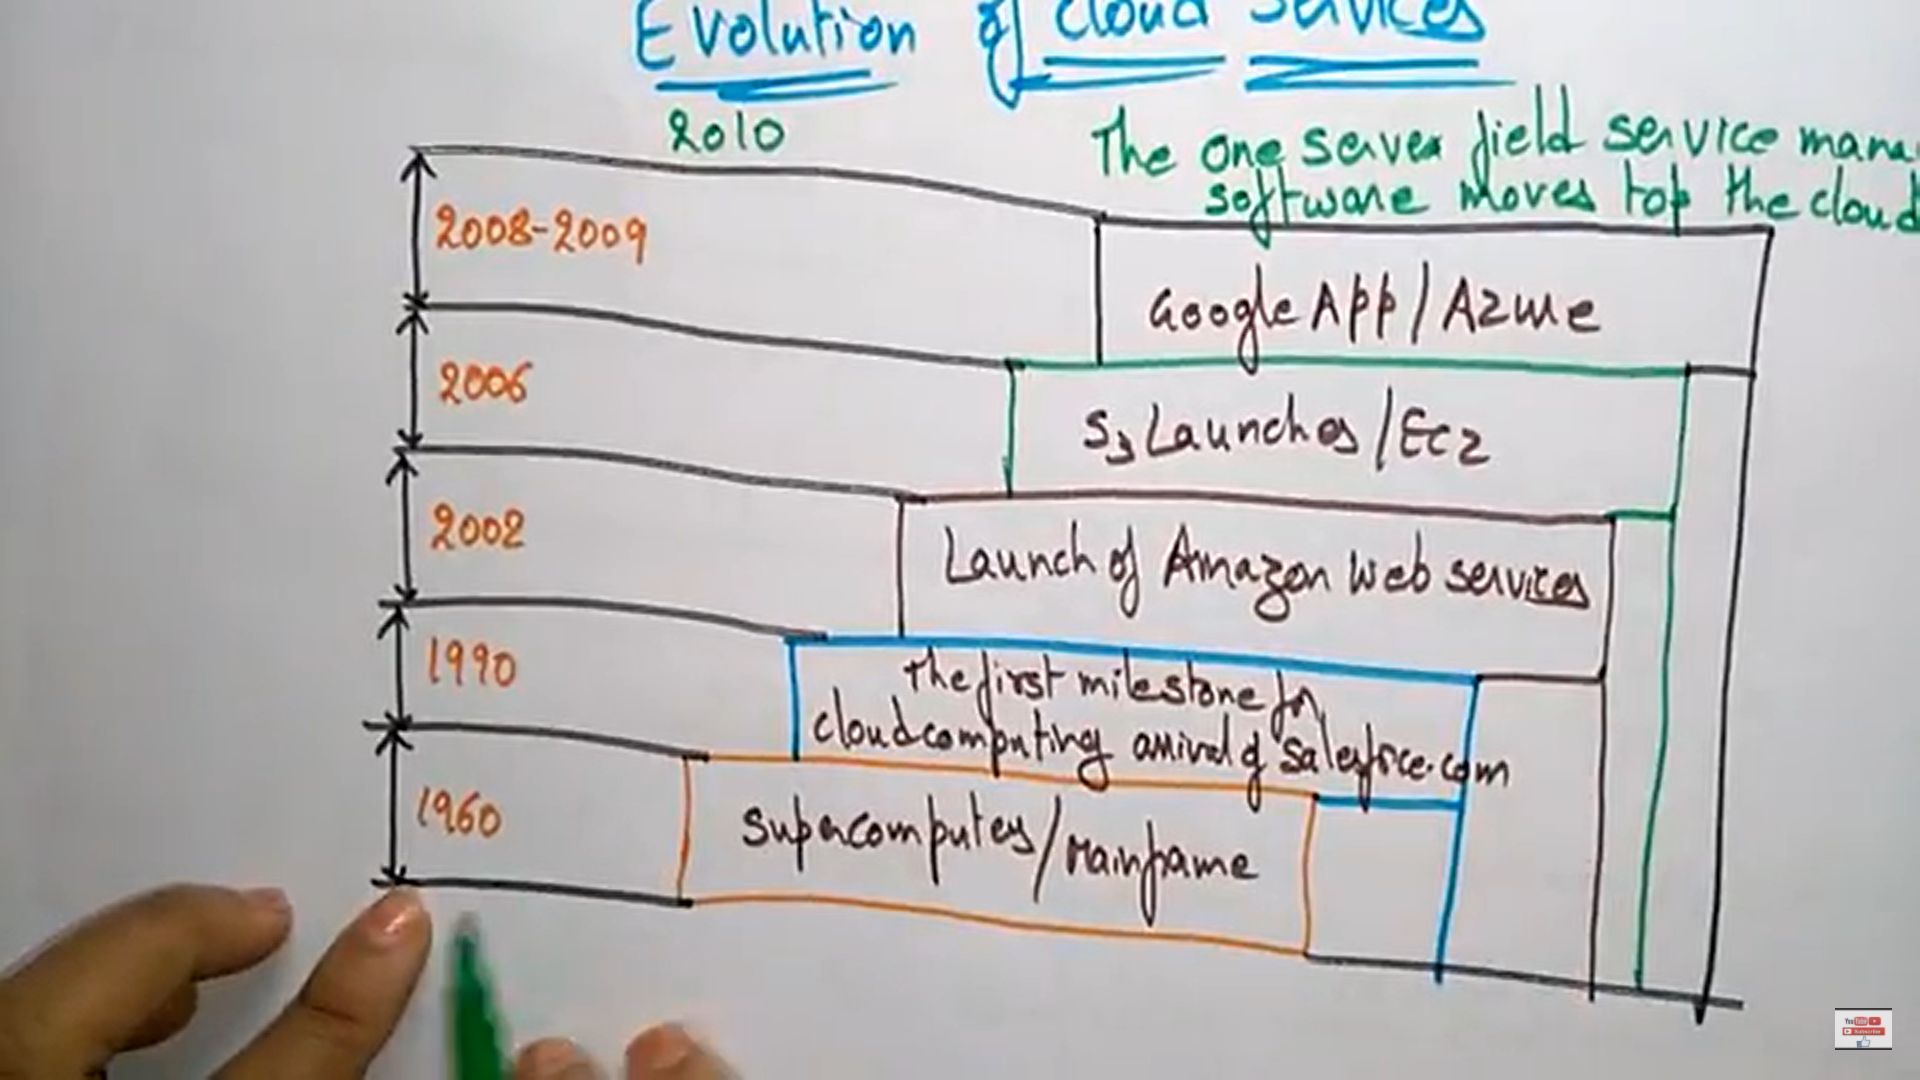 Evolution of cloud services
2010
The one server field service mana
software moves top the cloud
2008-2009
Google App / Azure
2006
S3 Launches / Ec2
2002
Launch of Amazon web services
1990
The first milestone for
cloud computing arrival of salesforce.com
1960
Supercomputers / Mainframe
YouTube
Subscribe